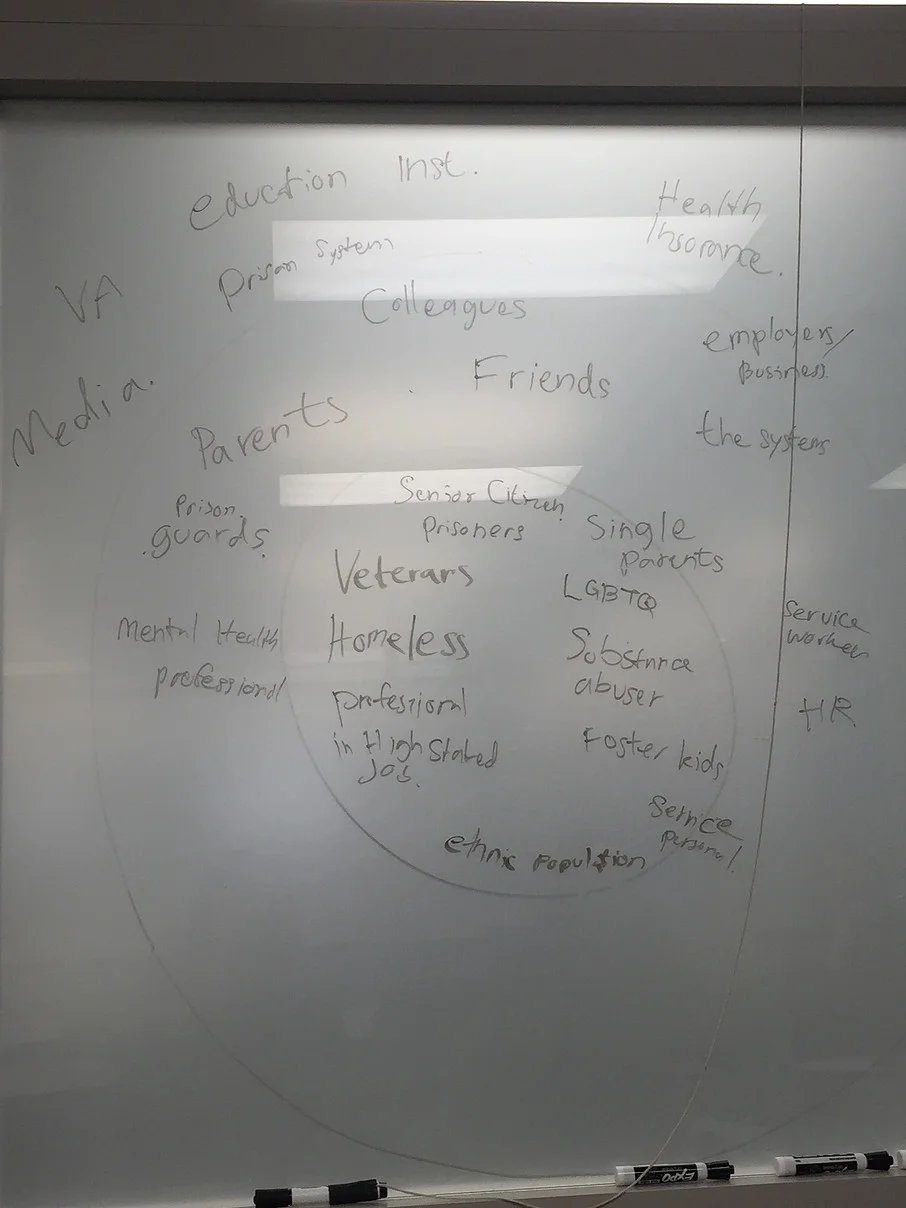 education Inst.
Health
Insorance.
Prison System
VA
Colleagues
employers/
Business.
Friends
Media.
Parents
the systems
Senior Citizen
Prisoners
Prison
guards.
Single
parents
Veterars
LGBTQ
Service
workers
Mental Health
professional
Homeless
Sobstance
abuser
professional
in High Staked
Job.
HR
Foster kids
Service
personal
ethnic population
EXPO